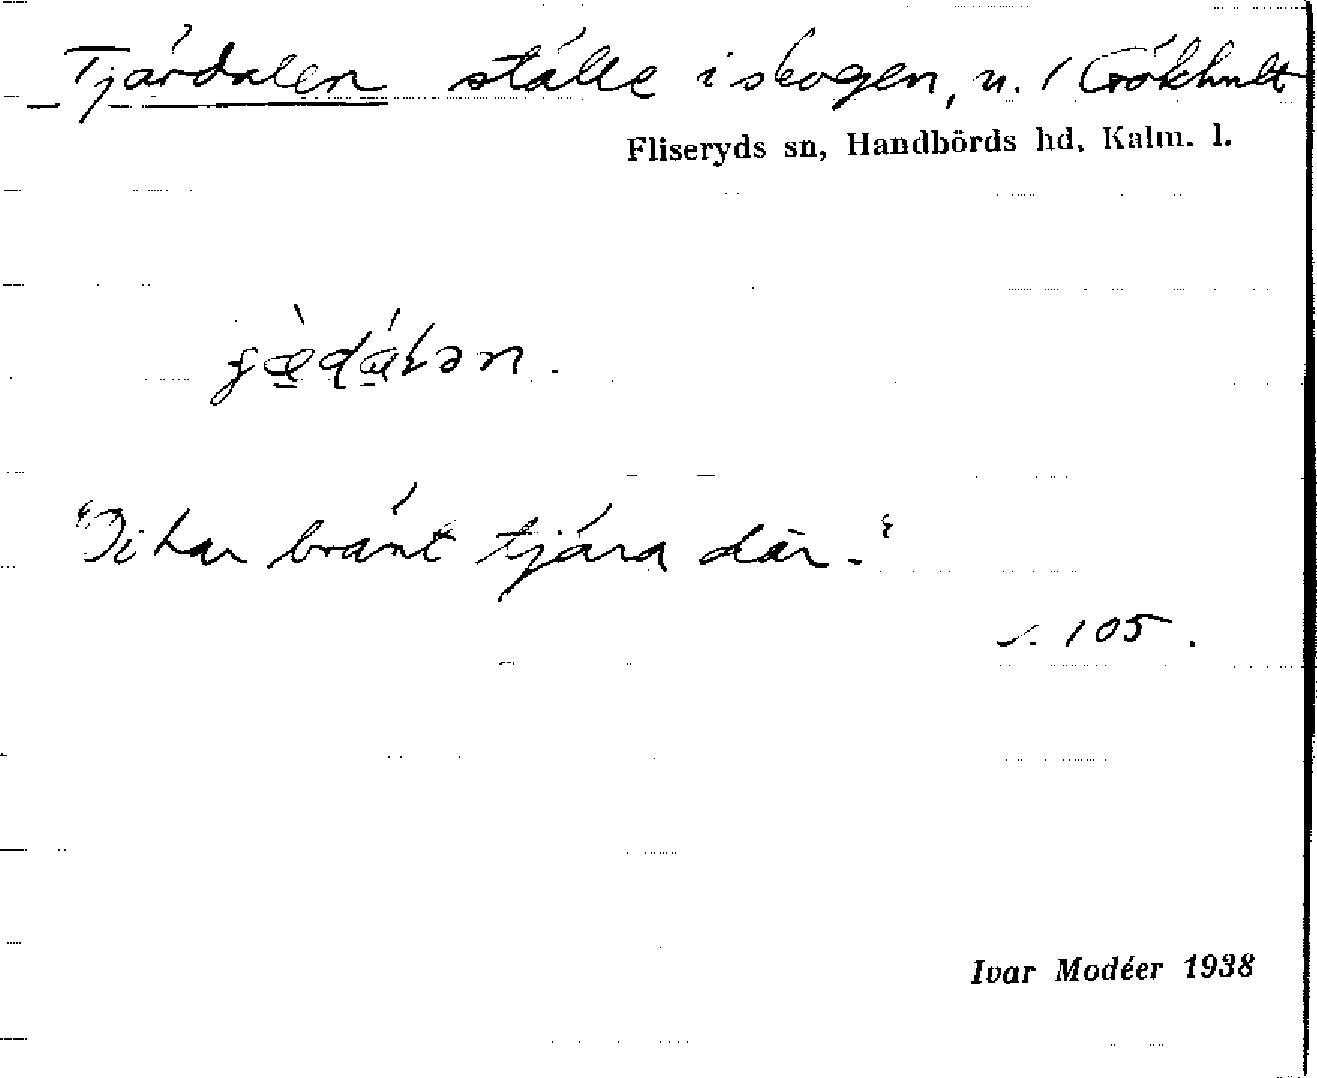 Tjärdalen ställe i skogen, u. Grökhult
Fliseryds sn, Handbörds hd, Kalm. l.
"Di har bränt tjära där."
s. 105.
Ivar Modéer 1938